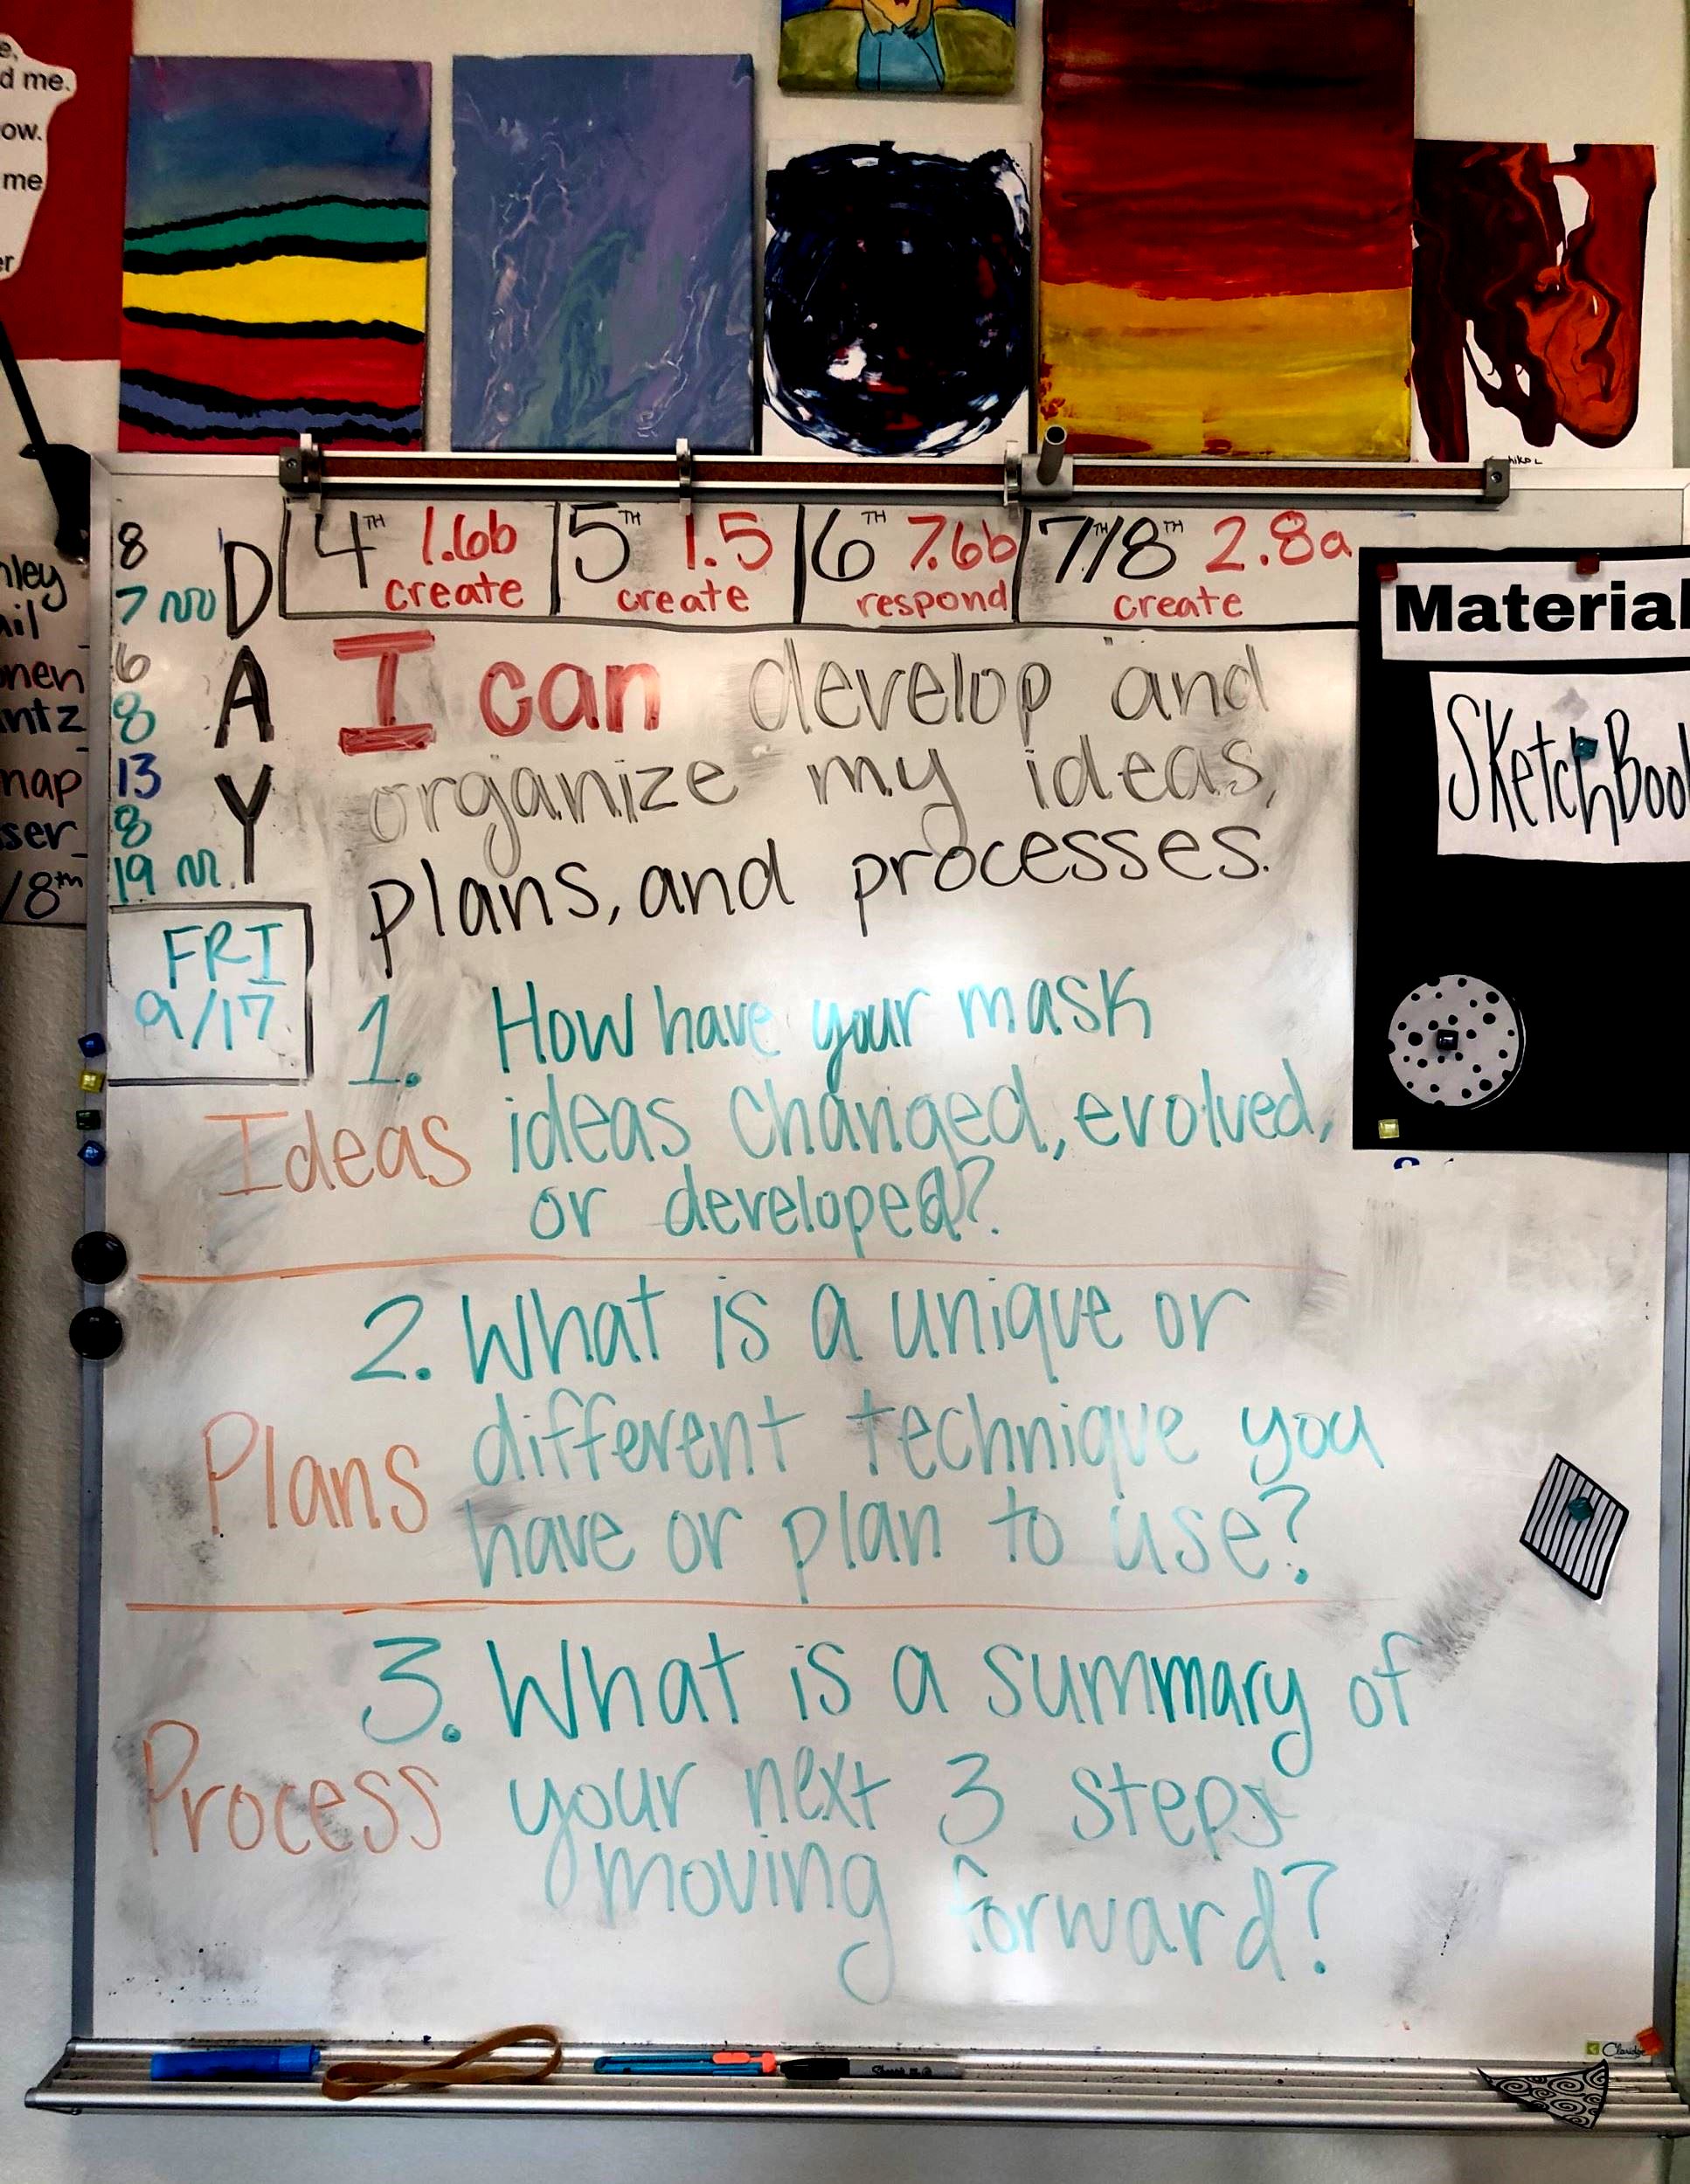 e,
d me.
ow.
me
er
hiko L
8
7
6
8
13
8
19
DAY
4TH 1.6b create
5TH 1.5 create
6TH 7.6b respond
7TH/8TH 2.8a create
nley
ail
onen
ntz
map
ser
/8th
Material
SketchBook
I can develop and
organize my ideas,
plans, and processes.
FRI
9/17
1. How have your mask
Ideas ideas changed, evolved,
or developed?
2. What is a unique or
different technique you
Plans have or plan to use?
3. What is a summary of
Process your next 3 steps
moving forward?
Claridge
Sharpie